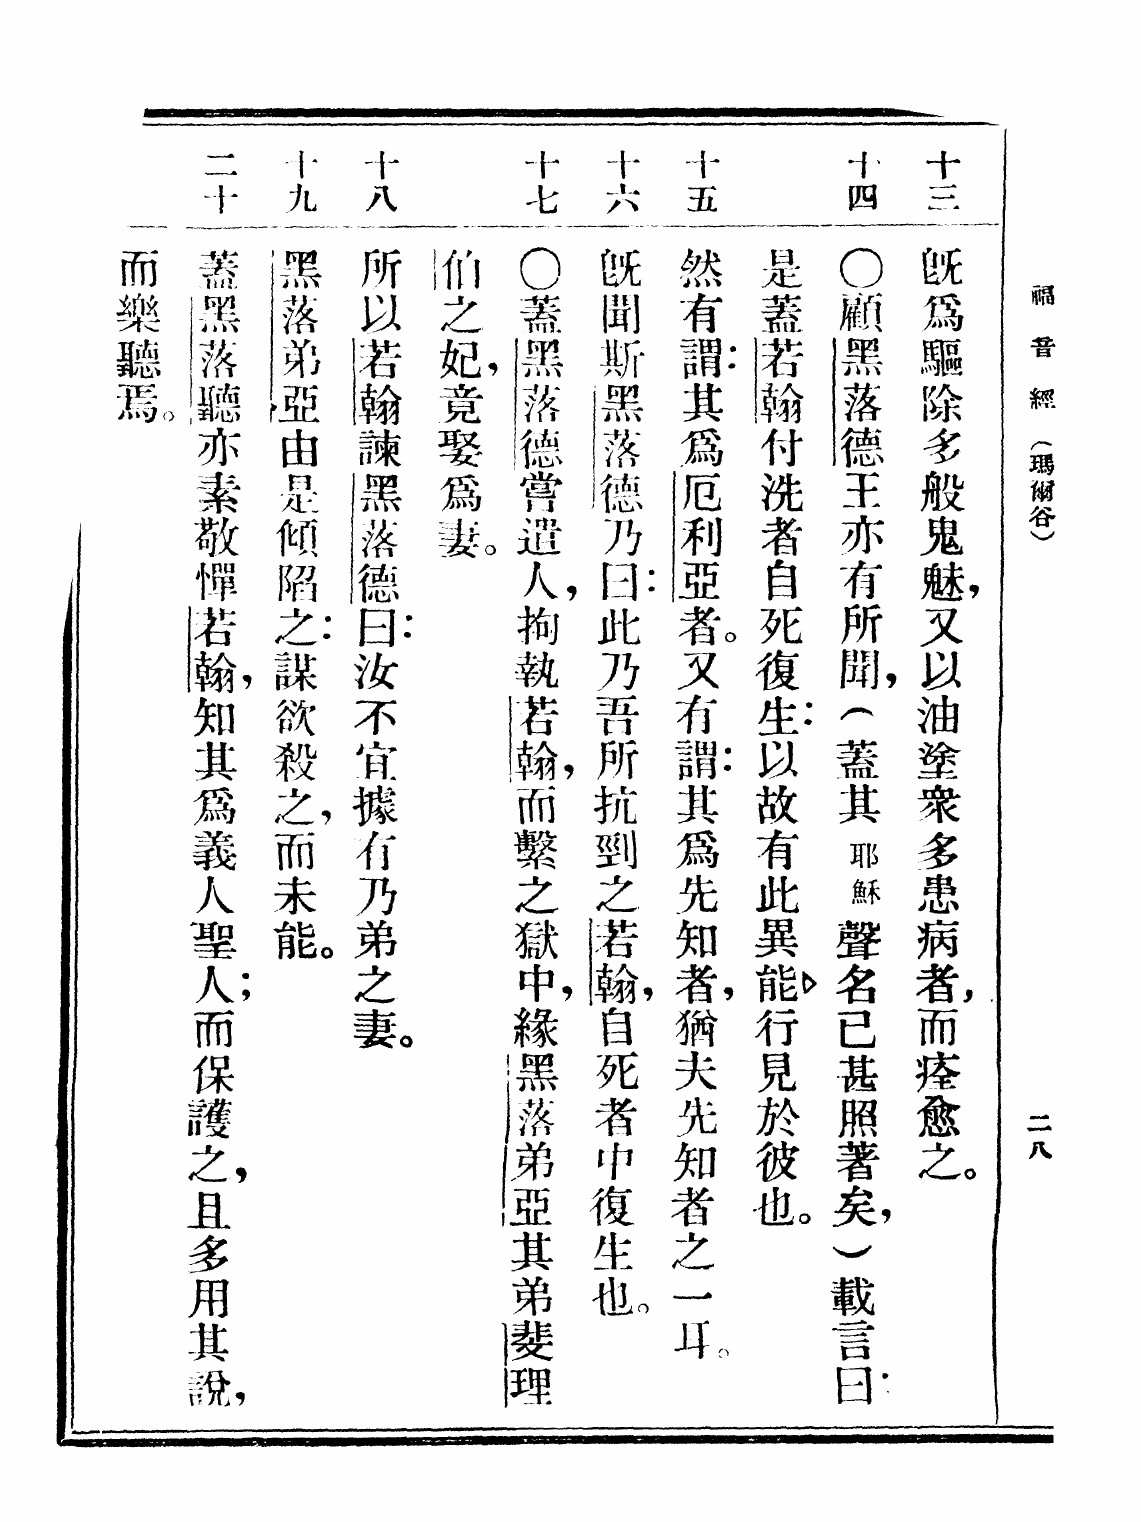 福音經（瑪爾谷）
二八
十三
旣爲驅除多般鬼魅，又以油塗衆多患病者，而痊愈之。
十四
〇顧黑落德王亦有所聞，（蓋其耶穌聲名已甚照著矣，）載言曰：
是蓋若翰付洗者自死復生：以故有此異能行見於彼也。
十五
然有謂：其爲厄利亞者。又有謂：其爲先知者，猶夫先知者之一耳。
十六
旣聞斯黑落德乃曰：此乃吾所抗剄之若翰，自死者中復生也。
十七
〇蓋黑落德嘗遣人，拘執若翰，而繫之獄中，緣黑落弟亞其弟斐理
伯之妃，竟娶爲妻。
十八
所以若翰諫黑落德曰：汝不宜據有乃弟之妻。
十九
黑落弟亞由是傾陷之：謀欲殺之，而未能。
二十
蓋黑落聽亦素敬憚若翰，知其爲義人聖人；而保護之，且多用其說，
而樂聽焉。